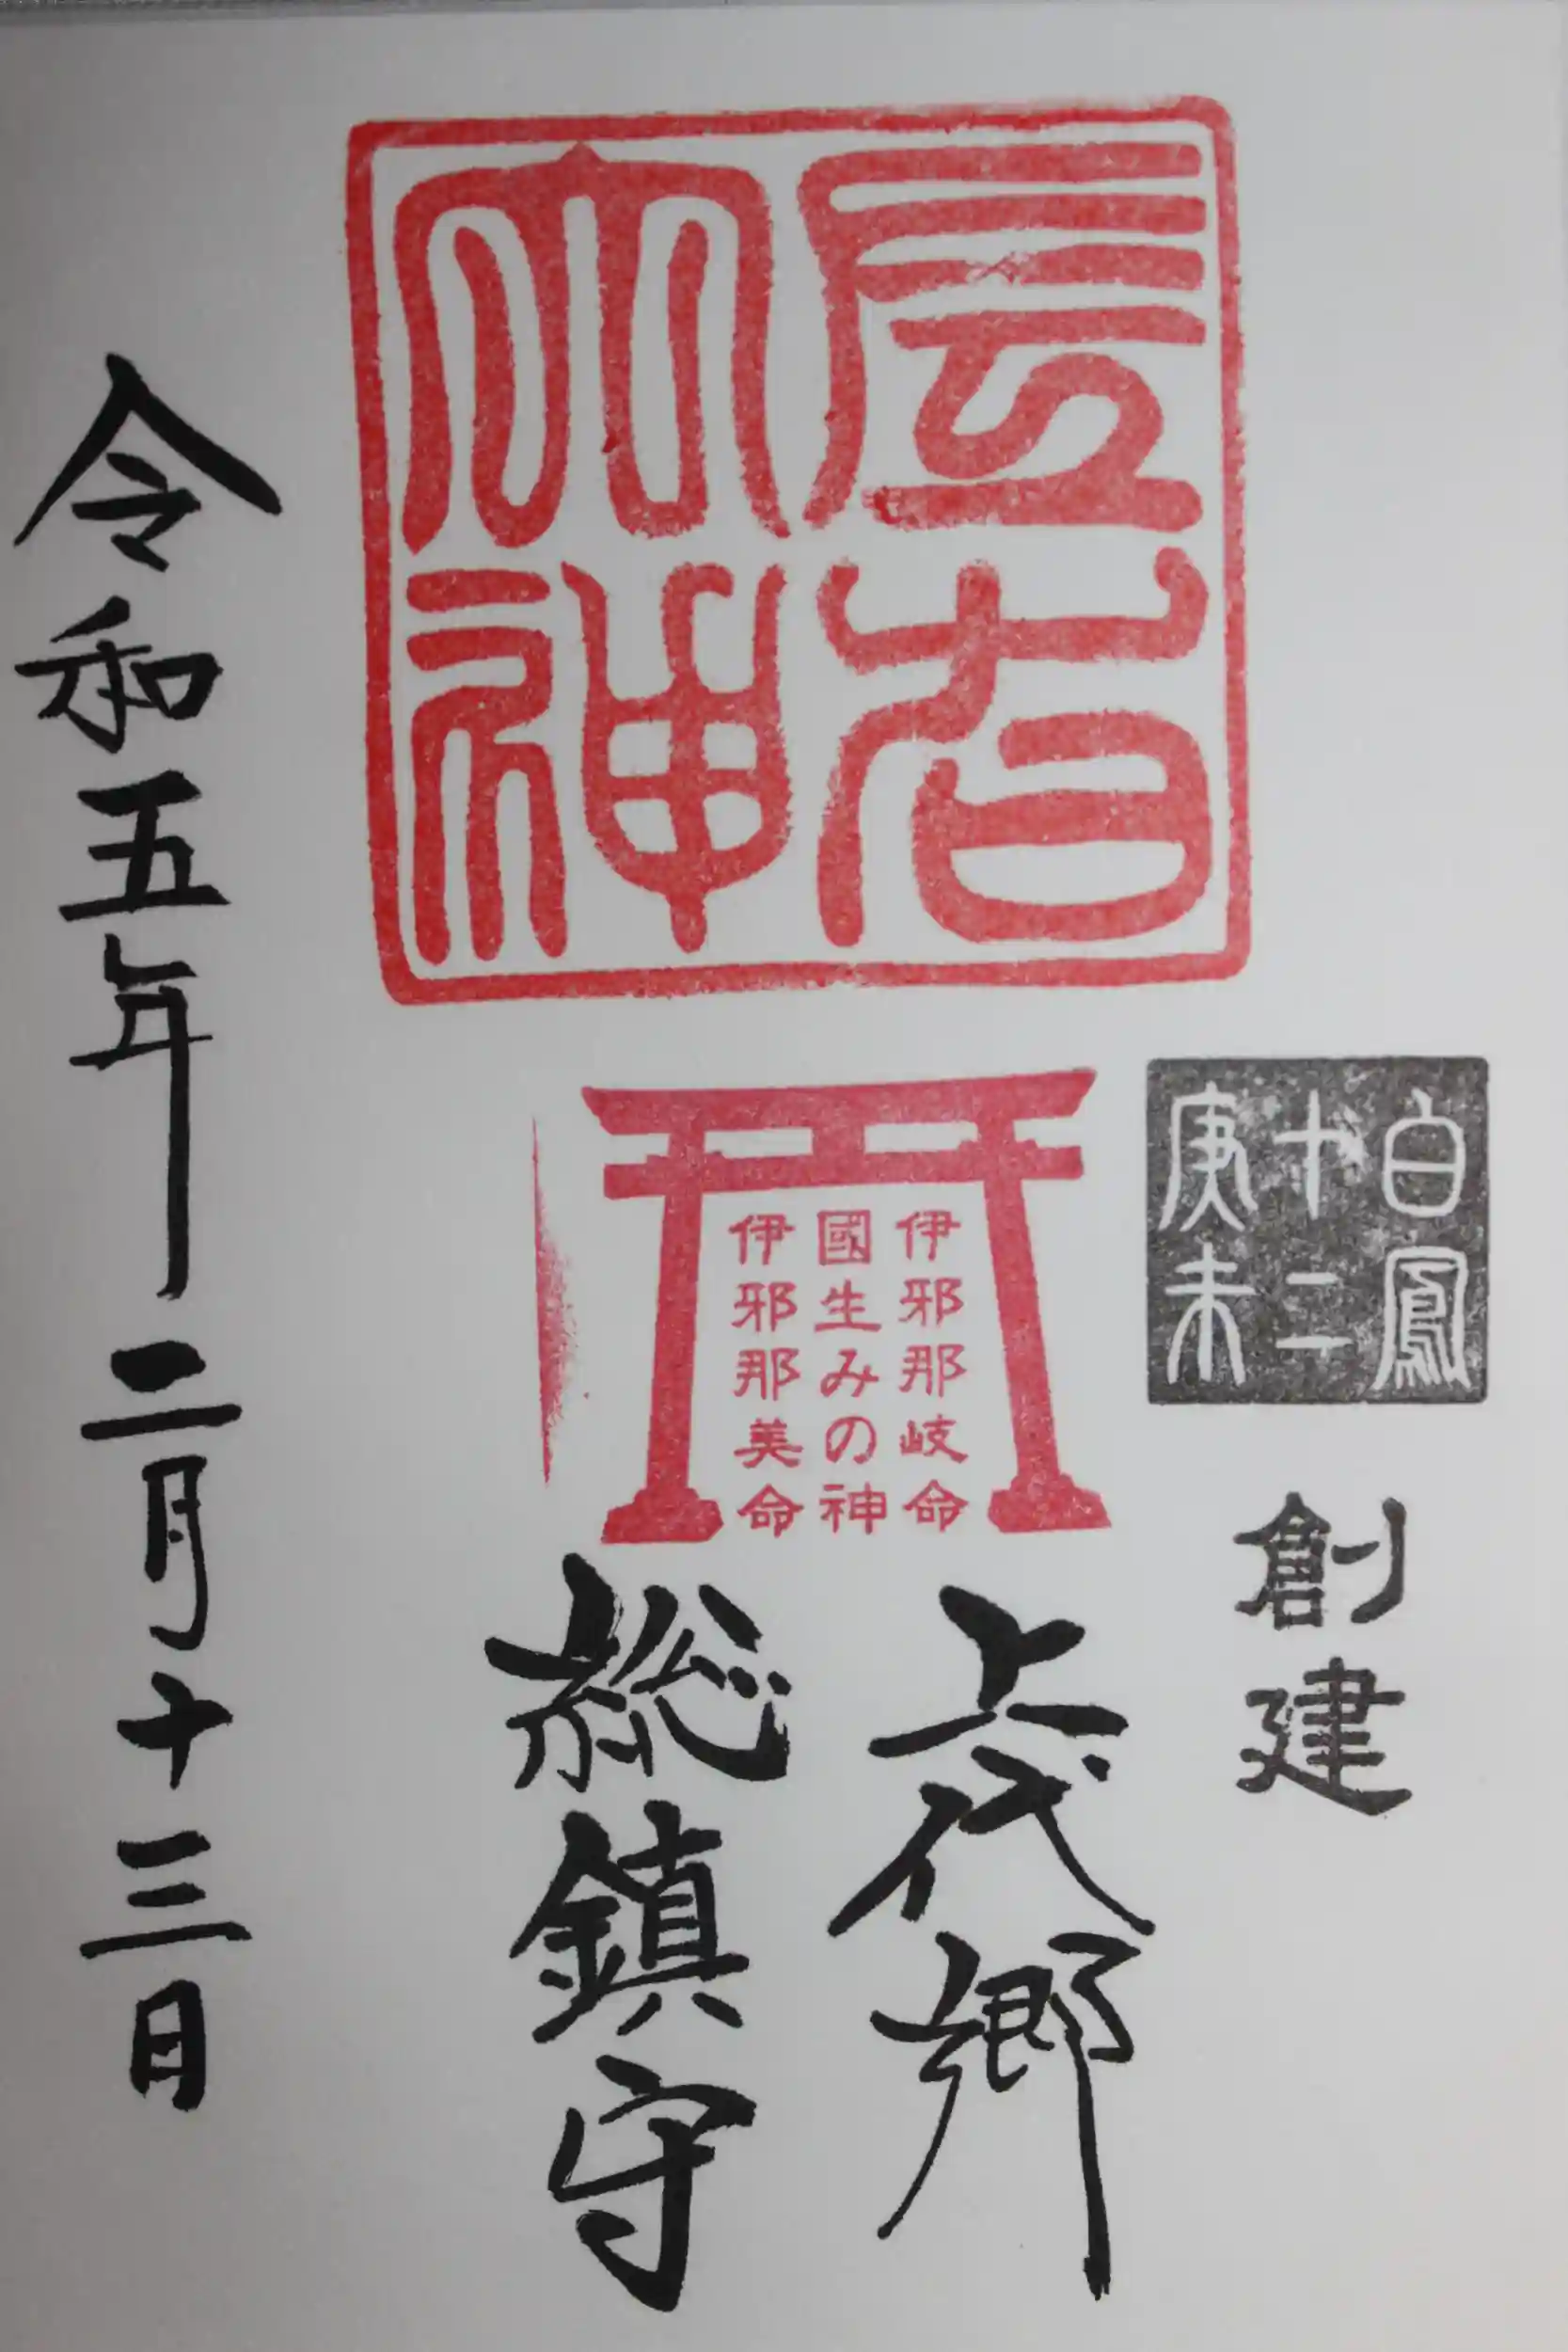 大神
白鳳
十二
庚未
創建
伊邪那岐命
國生みの神
伊邪那美命
上代郷
総鎮守
令和五年二月十三日